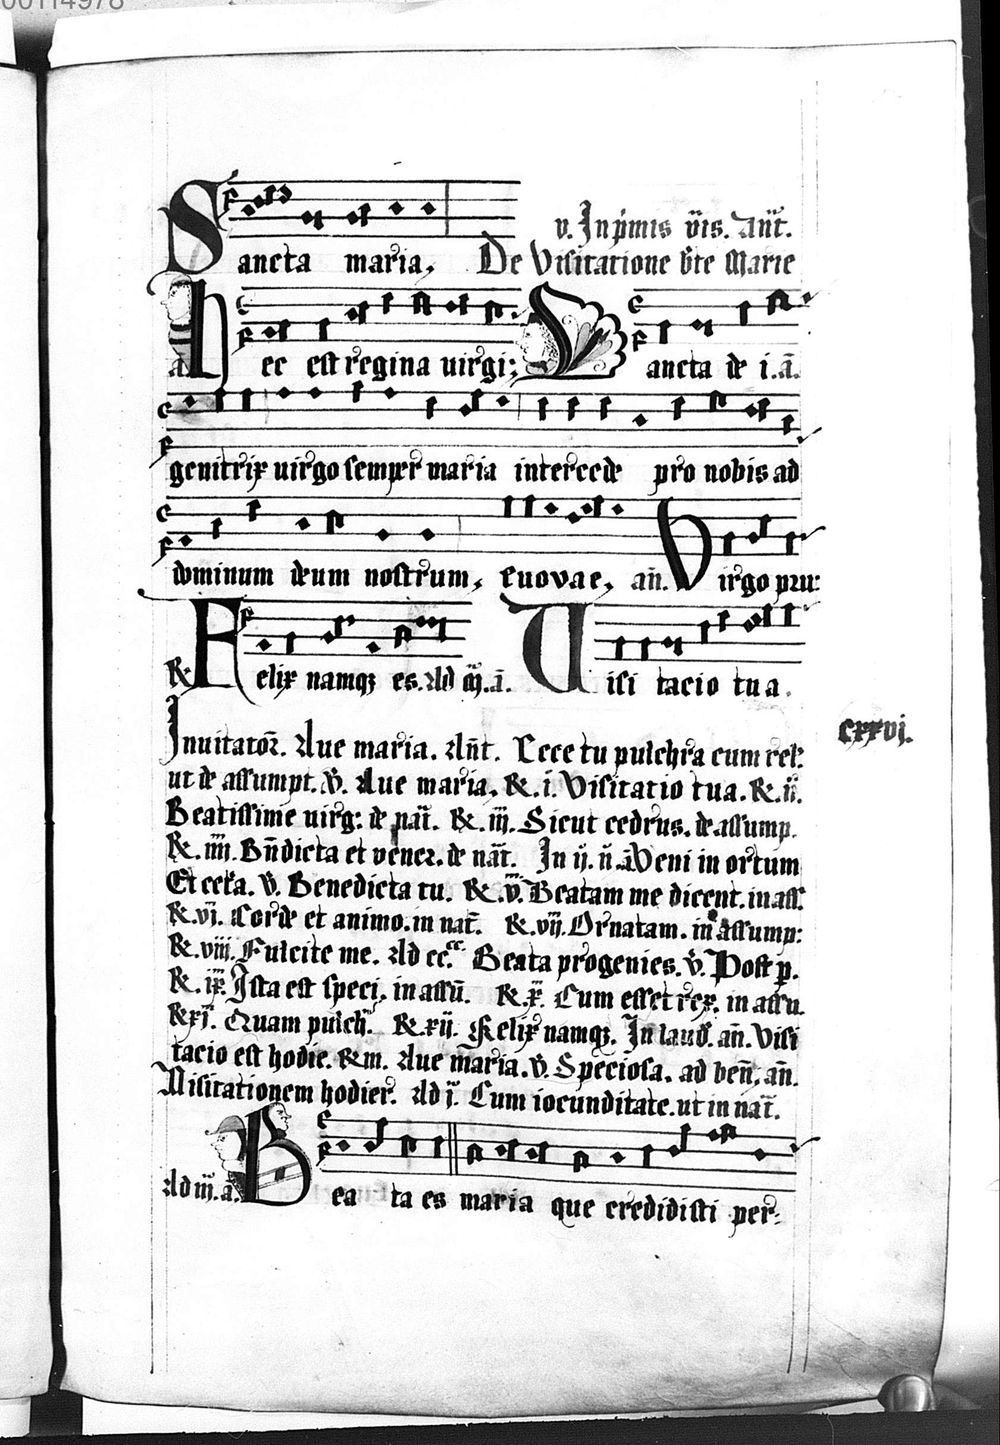 00114978
v. In pimis vi̅s. Ant̅.
Sancta maria, De Visitatione bt̅e Marie
a̅. Hec est regina uirgi: Sancta de i. a̅.
genitrix uirgo semper maria intercede pro nobis ad
dominum deum nostrum, Euovae, an̅. Virgo pru:
℟. Felix namqꝫ es. Ad m̅. a̅. Uisi tacio tua.
Inuitator̅. Aue maria. An̅t. Ecce tu pulchra cum rel:
ut de assumpt. v̅. Aue maria, ℟. i. Visitatio tua. ℟. ii.
Beatissime uirg: de nat̅. ℟. iii. Sicut cedrus. de assump.
℟. iiii. Bn̅dicta et vener. de nat̅. In ij. n̅. a̅ Veni in ortum
Et cet̅a. v̅. Benedicta tu. ℟. v. Beatam me dicent. in ass.
℟. vi. Corde et animo. in nat̅. ℟. vij. Ornatam. in assump:
℟. viii. Fulcite me. Ad cc̅. Beata progenies. v̅. Post p.
℟. ix. Ista est speci. in assu̅. ℟. x. Cum esset rex. in assu.
℟. xi. Quam pulch̅. ℟. xii. Felix namqꝫ. In laud̅. an̅. Visi
tacio est hodie. ℟m. Aue maria. v̅. Speciosa. ad ben̅, an̅.
Visitationem hodier̅. Ad i̅. Cum iocunditate. ut in nat̅.
Ad iij. a̅. Bea ta es maria que credidisti per:
cxxvi.